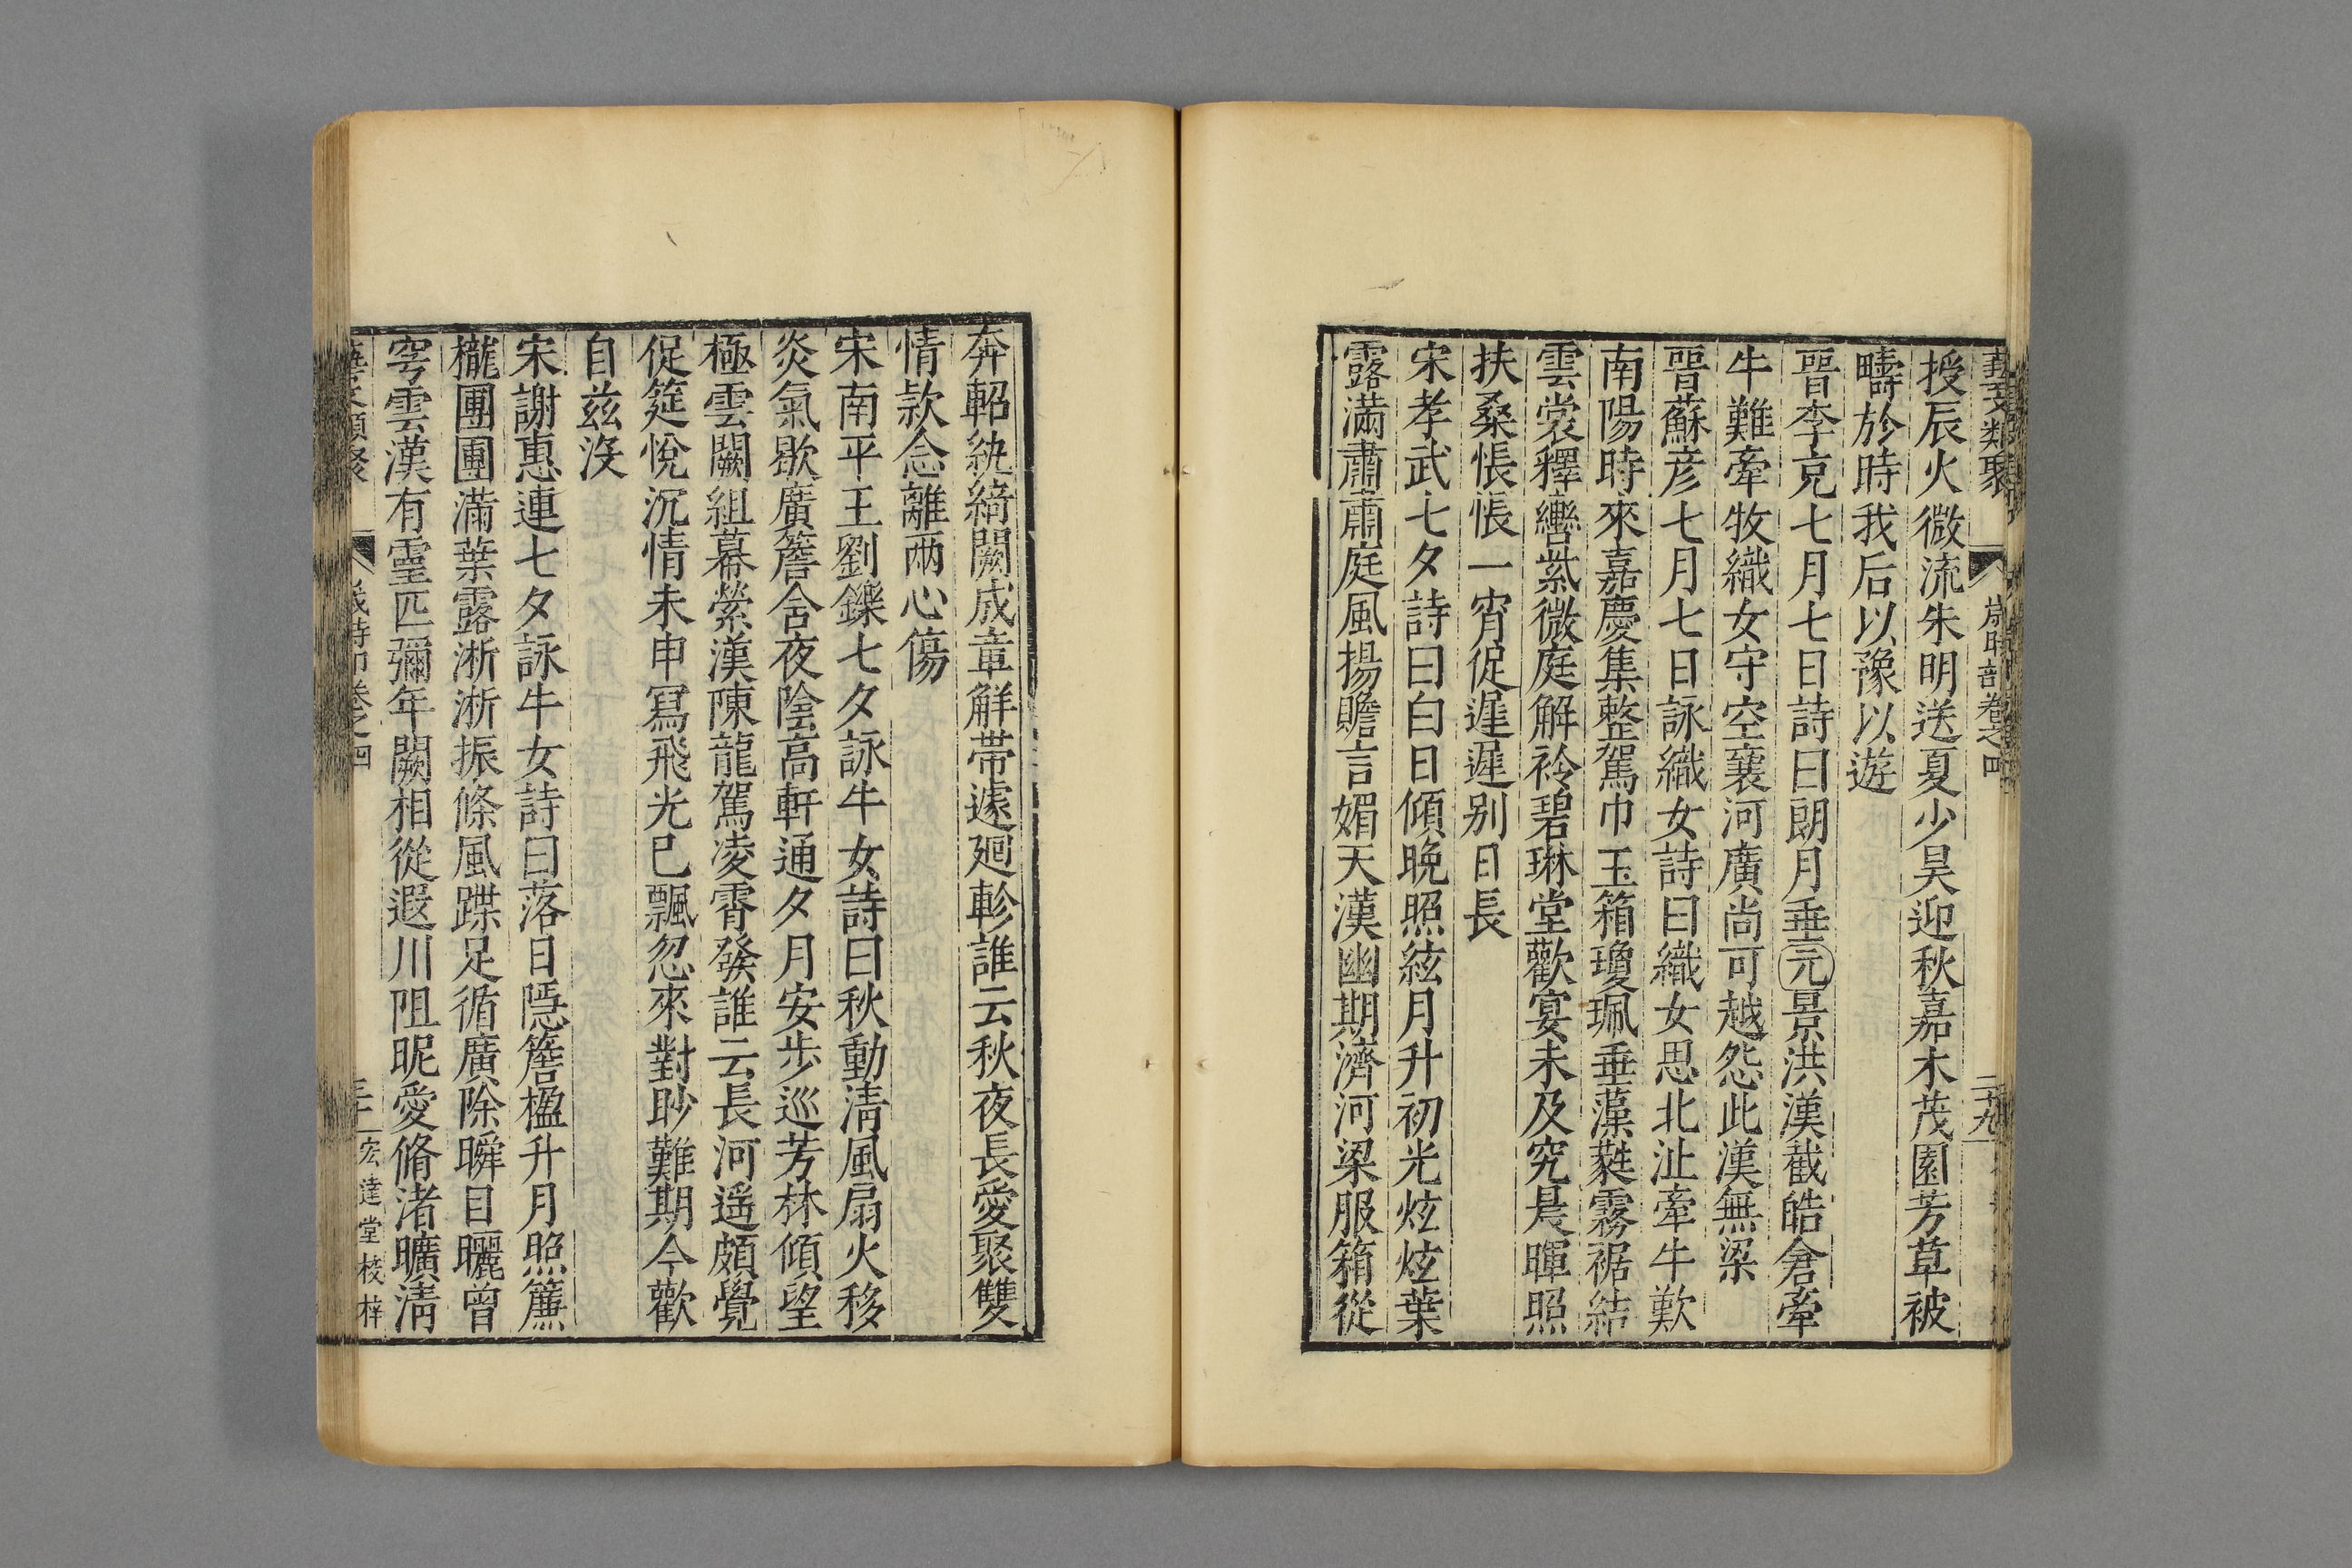 藝文類聚 歲時部卷之四 二十九
授辰火微流朱明送夏少昊迎秋嘉木茂園芳草被
疇於時我后以豫以遊
晉李充七月七日詩曰朗月垂元景洪漢截皓倉牽
牛難牽牧織女守空襄河廣尚可越怨此漢無梁
晉蘇彥七月七日詠織女詩曰織女思北沚牽牛歎
南陽時來嘉慶集整駕巾玉箱瓊珮垂藻蕤霧裾結
雲裳釋轡紫微庭解衿碧琳堂歡宴未及究晨暉照
扶桑悵悵一宵促遲遲別日長
宋孝武七夕詩曰白日傾晚照絃月升初光炫炫葉
露滿肅肅庭風揚瞻言媚天漢幽期濟河梁服箱從
奔軺紈綺闕成章解帶遽廻軫誰云秋夜長愛聚雙
情款念離兩心傷
宋南平王劉鑠七夕詠牛女詩曰秋動清風扇火移
炎氣歇廣簷含夜陰高軒通夕月安步巡芳林傾望
極雲闕組幕縈漢陳龍駕凌霄發誰云長河遙頗覺
促筵悅沉情未申寫飛光已飄忽來對眇難期今歡
自茲沒
宋謝惠連七夕詠牛女詩曰落日隱簷楹升月照簾
櫳團團滿葉露淅淅振條風蹀足循廣除瞬目曬曾
穹雲漢有靈匹彌年闕相從遐川阻昵愛脩渚曠清
藝文類聚 歲時部卷之四 三十 宏達堂校梓